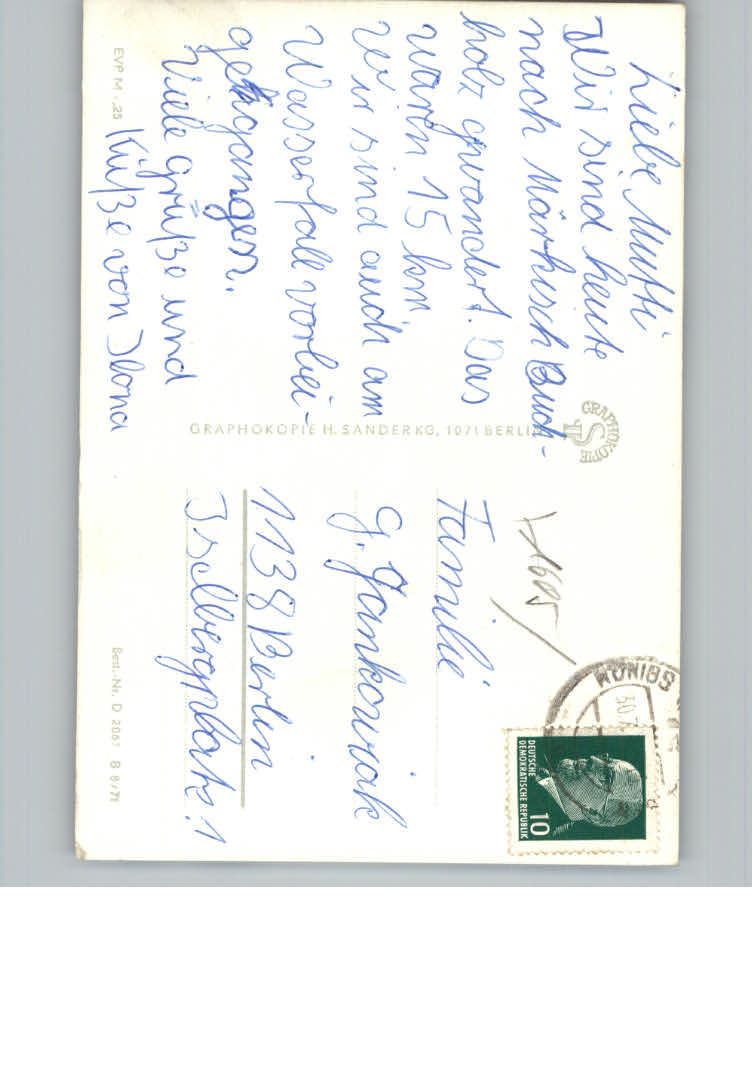 Liebe Mutti
Wir sind heute
nach Märkisch Buch-
holz gewandert. Das
waren 15 km.
Wir sind auch am
Wasserfall vorbei-
gengangen.
Viele Grüße und
Küße von Ilona
EVP M -,25
GRAPHOKOPIE H. SANDER KG, 1071 BERLIN
GRAPHOKOPIE
HS
Familie
G. Jankowiak
1138 Berlin
Iselbergplatz 1
Best.-Nr. D 2067 B 8/71
DEUTSCHE
DEMOKRATISCHE REPUBLIK
10